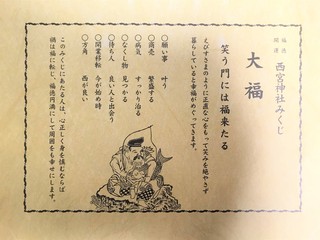 福徳
開運
西宮神社みくじ
大福
笑う門には福来たる
えびすさまのように正直な心をもって笑みを絶やさず
暮らしていると幸福がめぐってきます。
○願い事 叶う
○商売 繁盛する
○病気 すっかり治る
○なくし物 見つかる
○待ち人 良い人と出会う
○開業移転 今が始め時
○方角 西が良い
このみくじにあたる人は、心正しく身を慎むならば
禍は福に転じ、福徳円満にして周囲をも幸せにします。